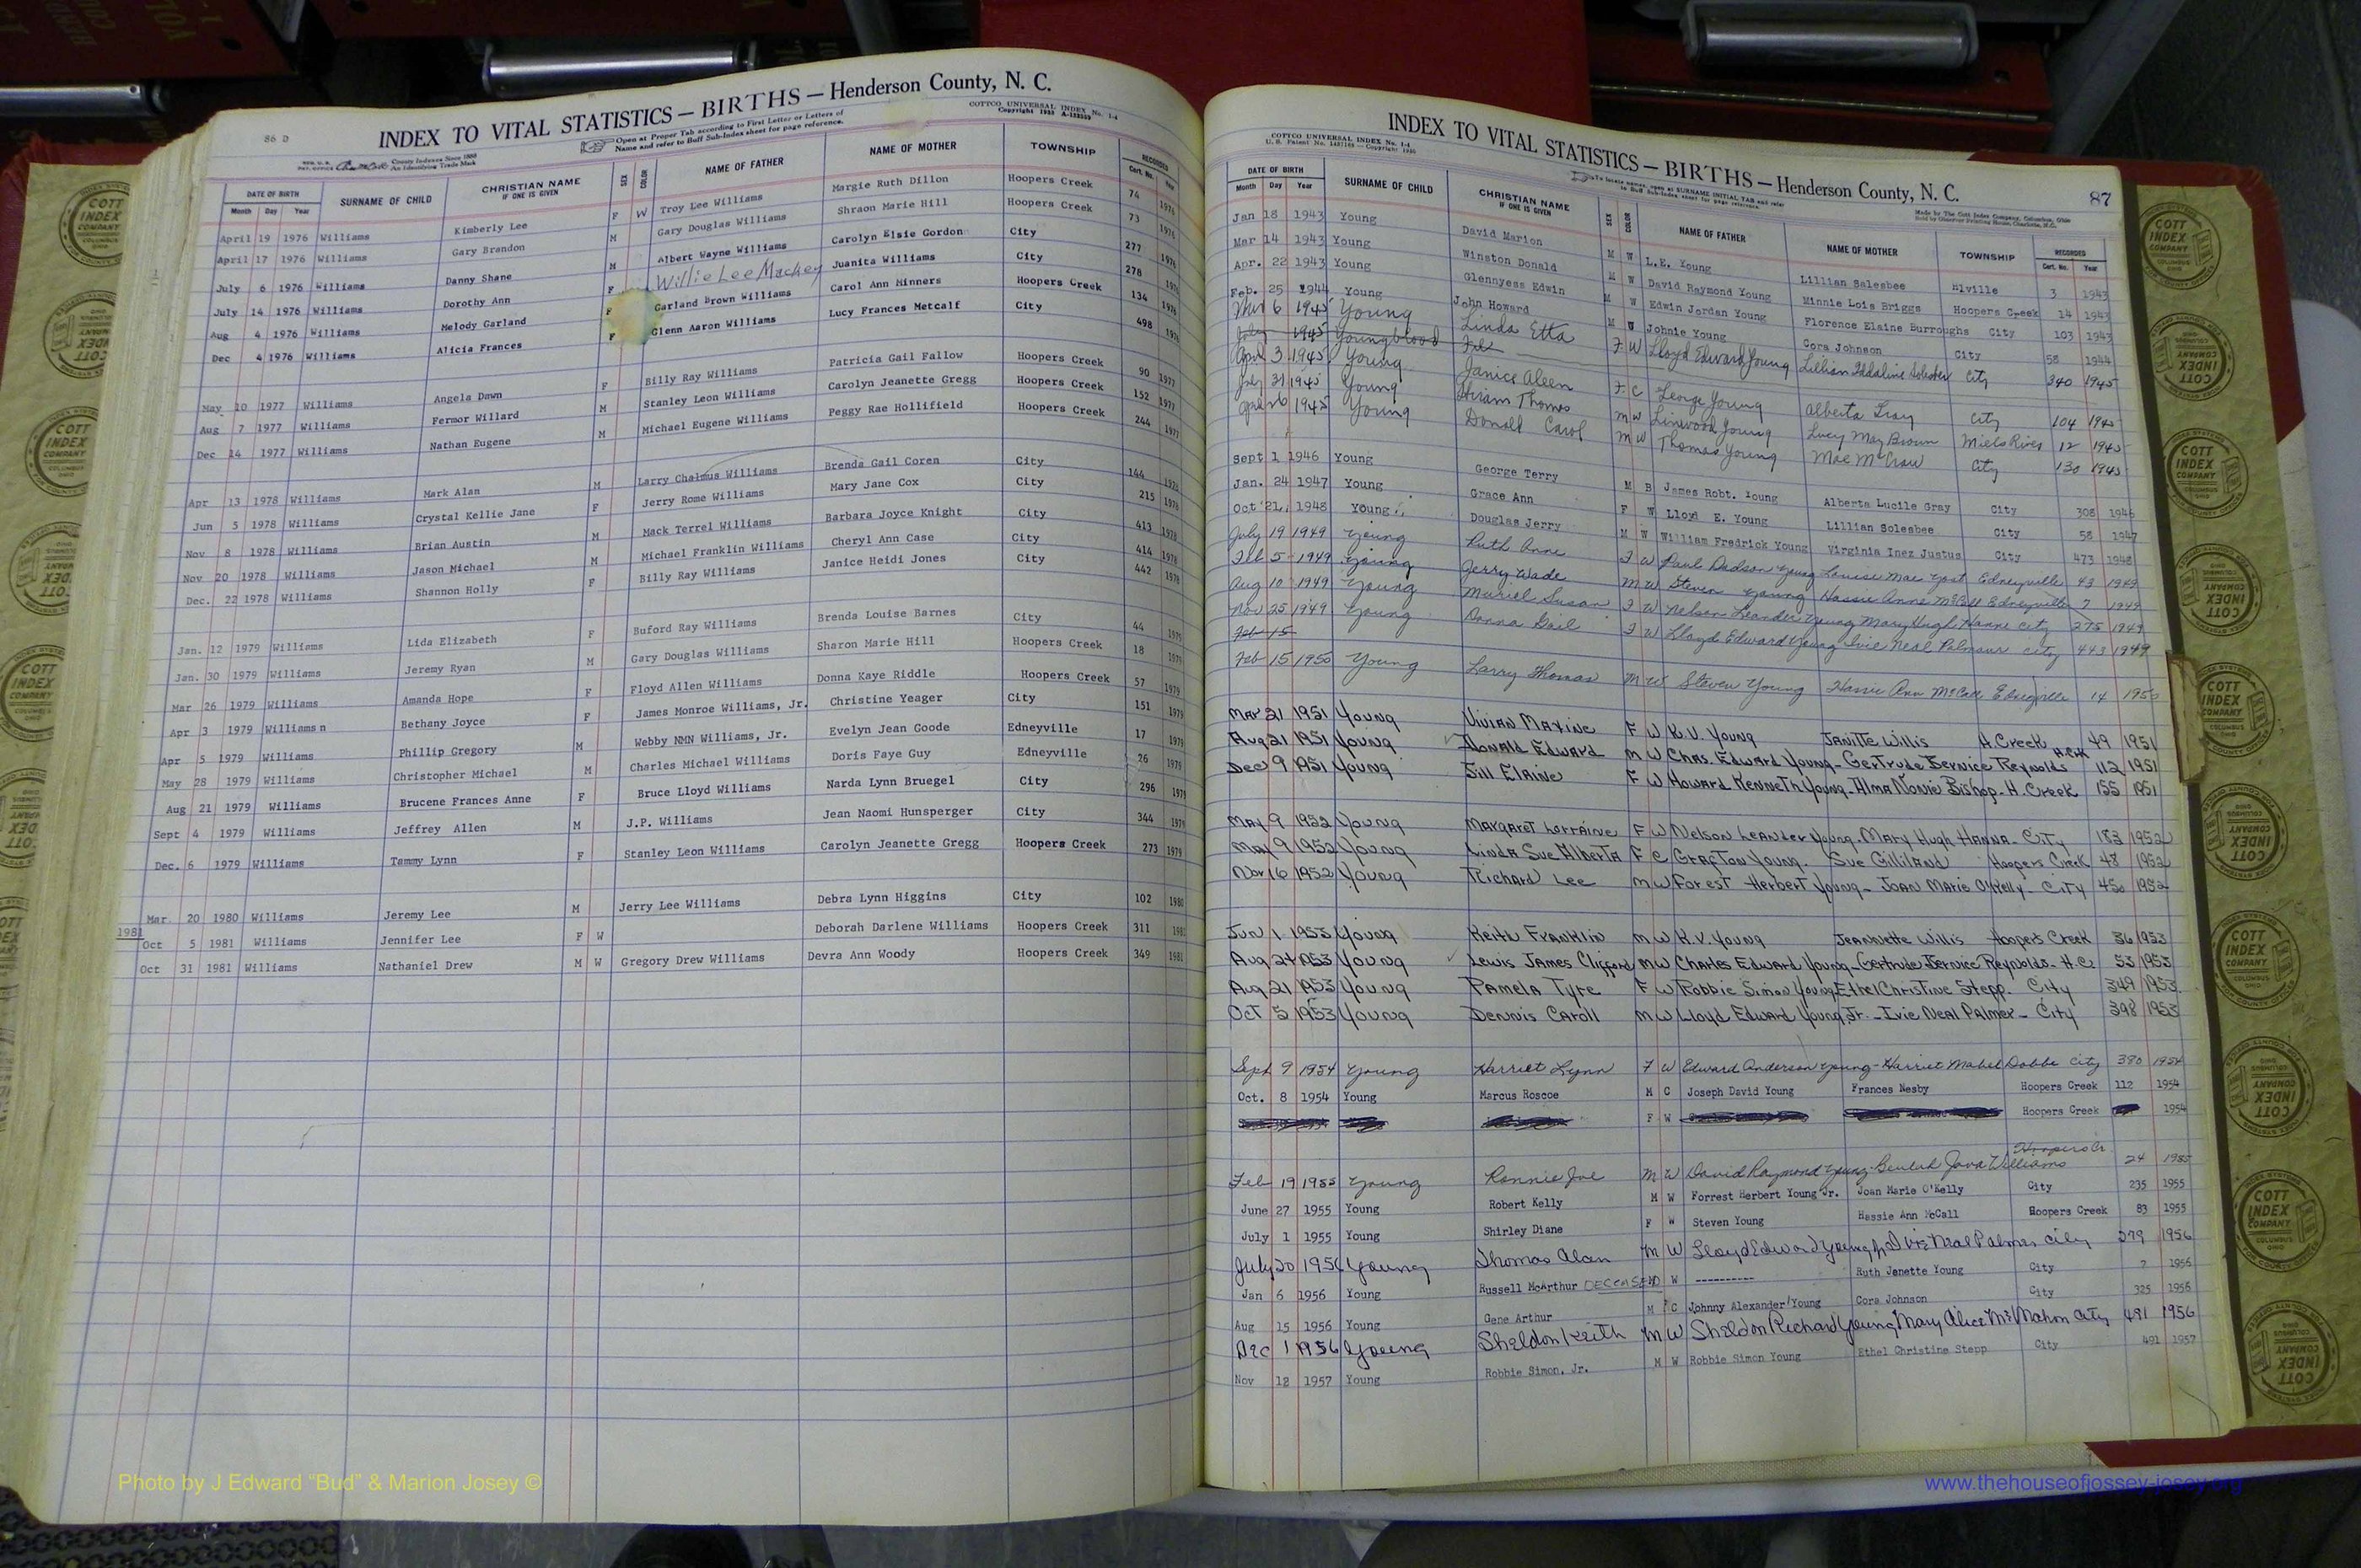 86 D
INDEX TO VITAL STATISTICS — BIRTHS — Henderson County, N. C.
COTTCO UNIVERSAL INDEX No. 1-4
Open at Proper Tab according to First Letter or Letters of
Name and refer to Buff Sub-Index sheet for page reference.
County Indexes Since 1888
An Identifying Trade Mark
DATE OF BIRTH SURNAME OF CHILD CHRISTIAN NAME IF ONE IS GIVEN SEX COLOR NAME OF FATHER NAME OF MOTHER TOWNSHIP RECORDED
Month Day Year Cert. No. Year
April 19 1976 Williams Kimberly Lee F W Troy Lee Williams Margie Ruth Dillon Hoopers Creek 74 1976
April 17 1976 Williams Gary Brandon M Gary Douglas Williams Shraon Marie Hill Hoopers Creek 73 1976
July 6 1976 Williams Danny Shane M Albert Wayne Williams Carolyn Elsie Gordon City 277 1976
July 14 1976 Williams Dorothy Ann F Willie Lee Mackey Juanita Williams City 278 1976
Aug 4 1976 Williams Melody Garland F Garland Brown Williams Carol Ann Hinners Hoopers Creek 134 1976
Dec 4 1976 Williams Alicia Frances F Glenn Aaron Williams Lucy Frances Metcalf City 498 1976
May 10 1977 Williams Angela Dawn F Billy Ray Williams Patricia Gail Fallow Hoopers Creek 90 1977
Aug 7 1977 Williams Fermor Willard M Stanley Leon Williams Carolyn Jeanette Gregg Hoopers Creek 152 1977
Dec 14 1977 Williams Nathan Eugene M Michael Eugene Williams Peggy Rae Hollifield Hoopers Creek 244 1977
Apr 13 1978 Williams Mark Alan M Larry Chalmus Williams Brenda Gail Coren City 144 1978
Jun 5 1978 Williams Crystal Kellie Jane F Jerry Rome Williams Mary Jane Cox City 215 1978
Nov 8 1978 Williams Brian Austin M Mack Terrel Williams Barbara Joyce Knight City 413 1978
Nov 20 1978 Williams Jason Michael M Michael Franklin Williams Cheryl Ann Case City 414 1978
Dec. 22 1978 Williams Shannon Holly F Billy Ray Williams Janice Heidi Jones City 442 1978
Jan. 12 1979 Williams Lida Elizabeth F Buford Ray Williams Brenda Louise Barnes City 44 1979
Jan. 30 1979 Williams Jeremy Ryan M Gary Douglas Williams Sharon Marie Hill Hoopers Creek 18 1979
Mar 26 1979 Williams Amanda Hope F Floyd Allen Williams Donna Kaye Riddle Hoopers Creek 57 1979
Apr 3 1979 Williams n Bethany Joyce F James Monroe Williams, Jr. Christine Yeager City 151 1979
Apr 5 1979 Williams Phillip Gregory M Webby NMN Williams, Jr. Evelyn Jean Goode Edneyville 17 1979
May 28 1979 Williams Christopher Michael M Charles Michael Williams Doris Faye Guy Edneyville 26 1979
Aug 21 1979 Williams Brucene Frances Anne F Bruce Lloyd Williams Narda Lynn Bruegel City 296 1979
Sept 4 1979 Williams Jeffrey Allen M J.P. Williams Jean Naomi Hunsperger City 344 1979
Dec. 6 1979 Williams Tammy Lynn F Stanley Leon Williams Carolyn Jeanette Gregg Hoopers Creek 273 1979
Mar. 20 1980 Williams Jeremy Lee M Jerry Lee Williams Debra Lynn Higgins City 102 1980
1981
Oct 5 1981 Williams Jennifer Lee F W Deborah Darlene Williams Hoopers Creek 311 1981
Oct 31 1981 Williams Nathaniel Drew M W Gregory Drew Williams Devra Ann Woody Hoopers Creek 349 1981
Photo by J Edward “Bud” & Marion Josey ©
INDEX TO VITAL STATISTICS — BIRTHS — Henderson County, N. C. 87
COTTCO UNIVERSAL INDEX No. 1-4
Made by The Cott Index Company, Columbus, Ohio
DATE OF BIRTH SURNAME OF CHILD CHRISTIAN NAME IF ONE IS GIVEN SEX COLOR NAME OF FATHER NAME OF MOTHER TOWNSHIP RECORDED
Month Day Year Cert. No. Year
Jan 18 1943 Young David Marion M W L.E. Young Lillian Salesbee Hlville 3 1943
Mar 14 1943 Young Winston Donald M W David Raymond Young Minnie Lois Briggs Hoopers Creek 14 1943
Apr. 22 1943 Young Glennyess Edwin M W Edwin Jordan Young Florence Elaine Burroughs City 103 1943
Feb. 25 1944 Young John Howard M W Johnie Young Cora Johnson City 58 1944
Mar 6 1945 Young Linda Etta F W Lloyd Edward Young Lillian City 340 1945
July 1945 Youngblood
April 3 1945 Young Janice Aleen F C George Young Alberta Gray City 104 1945
July 31 1945 Young Hiram Thomas M W Linwood Young Lucy May Brown Mills River 12 1945
April 26 1945 Young Donald Carol M W Thomas Young Mae McCraw City 130 1945
Sept 1 1946 Young George Terry M B James Robt. Young Alberta Lucile Gray City 308 1946
Jan. 24 1947 Young Grace Ann F W Lloyd E. Young Lillian Solesbee City 58 1947
Oct 21, 1948 Young Douglas Jerry M W William Fredrick Young Virginia Inez Justus City 473 1948
July 19 1949 Young Ruth Anne F W Paul Dodson Young Louise Mae Yost Edneyville 43 1949
Feb 5 1949 Young Jerry Wade M W Steven Young Hassie Anne McCall Edneyville 7 1949
Aug 10 1949 Young Muriel Susan F W Nelson Leander Young Mary Hugh Hanna City 275 1949
Nov 25 1949 Young Donna Gail F W Lloyd Edward Young Ivie Neal Palmour City 443 1949
Feb 15
Feb 15 1950 Young Larry Thomas M W Steven Young Hassie Ann McCall Edneyville 14 1950
Mar 21 1951 Young Vivian Maxine F W K.V. Young Janitte Willis H. Creek 49 1951
Aug 21 1951 Young Donald Edward M W Chas. Edward Young - Gertrude Bernice Reynolds H. Crk 112 1951
Dec 9 1951 Young Jill Elaine F W Howard Kenneth Young - Alma Nonie Bishop - H. Creek 155 1951
May 9 1952 Young Margaret Lorraine F W Nelson Leander Young - Mary Hugh Hanna - City 183 1952
May 9 1952 Young Linda Sue Alberta F C Grafton Young - Sue Gilliland Hoopers Creek 48 1952
Nov 16 1952 Young Richard Lee M W Forest Herbert Young - Joan Marie O'Kelly - City 450 1952
Jun 1 1953 Young Keith Franklin M W K.V. Young Jeannette Willis Hoopers Creek 36 1953
Aug 24 1953 Young Lewis James Clifford M W Charles Edward Young - Gertrude Bernice Reynolds - H.C. 53 1953
Aug 21 1953 Young Pamela Tyre F W Robbie Simon Young Ethel Christine Stepp. City 349 1953
Oct 5 1953 Young Dennis Caroll M W Lloyd Edward Young, Jr. - Ivie Neal Palmer - City 398 1953
Sept 9 1954 Young Harriet Lynn F W Edward Anderson Young - Harriet Mabel Dobbe City 380 1954
Oct. 8 1954 Young Marcus Roscoe M C Joseph David Young Frances Nesby Hoopers Creek 112 1954
F W Hoopers Creek 1954
Hoopers Cr
Feb 19 1955 Young Ronnie Joe M W David Raymond Young - Beulah Java Williams 24 1955
June 27 1955 Young Robert Kelly M W Forrest Herbert Young Jr. Joan Marie O'Kelly City 235 1955
July 1 1955 Young Shirley Diane F W Steven Young Hassie Ann McCall Hoopers Creek 83 1955
July 20 1956 Young Thomas Alan M W Lloyd Edward Young Jr Ivie Neal Palmer City 279 1956
Jan 6 1956 Young Russell McArthur DECEASED W ---------- Ruth Janette Young City 2 1956
Aug 15 1956 Young Gene Arthur M C Johnny Alexander Young Cora Johnson City 325 1956
Dec 1 1956 Young Sheldon Keith M W Sheldon Richard Young Mary Alice McMahon City 481 1956
Nov 12 1957 Young Robbie Simon, Jr. M W Robbie Simon Young Ethel Christine Stepp City 491 1957
www.thehouseofjossey-josey.org
COTT INDEX COMPANY COLUMBUS OHIO